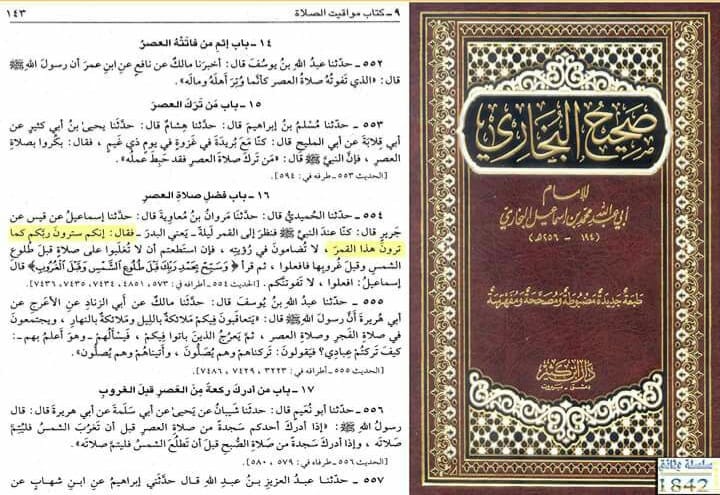 ٩ - كتاب مواقيت الصلاة
١٤٣
١٤ - باب إثم من فاتَتْهُ العصرُ
٥٥٢ - حدّثنا عبدُ اللهِ بنُ يوسُفَ قال: أخبرَنا مالكٌ عن نافعٍ عنِ ابنِ عمرَ أن رسولَ اللهِ ﷺ
قال: «الذي تَفوتُه صلاةُ العصرِ كأنَّما وُتِرَ أهلَهُ ومالَه».
١٥ - باب مَن تَرَكَ العصرَ
٥٥٣ - حدّثنا مُسْلمُ بنُ إبراهيمَ قال: حدّثنا هِشامٌ قال: حدّثنا يحيى بنُ أبي كثيرٍ عن
أبي قِلابةَ عن أبي المليحِ قال: كنّا مَعَ بُريدةَ في غَزوةٍ في يومٍ ذي غَيمٍ، فقال: بكّروا بصلاةِ
العصرِ، فإنَّ النبيَّ ﷺ قال: «مَن تَرَكَ صلاةَ العصرِ فقد حَبِطَ عملُه».
[الحديث ٥٥٣ - طرفه في: ٥٩٤].
١٦ - باب فضلِ صلاةِ العصرِ
٥٥٤ - حدّثنا الحُميديُّ قال: حدّثنا مَروانُ بنُ مُعاويةَ قال: حدّثنا إسماعيلُ عن قيسٍ عن
جَريرٍ قال: كنّا عندَ النبيِّ ﷺ فنظرَ إلى القمرِ ليلةً - يَعني البدرَ - فقال: إنكم سترونَ ربَّكم كما
ترونَ هذا القمرَ، لا تُضامونَ في رُؤيتِه، فإن استطعتم أن لا تُغلَبوا على صلاةٍ قبلَ طلوعِ
الشمسِ وقبلَ غُروبِها فافعلوا، ثم قرأ ﴿وَسَبِّحْ بِحَمْدِ رَبِّكَ قَبْلَ طُلُوعِ الشَّمْسِ وَقَبْلَ الْغُرُوبِ﴾ قال
إسماعيلُ: افعلوا، لا تفوتنَّكم. [الحديث ٥٥٤ - أطرافه في: ٥٧٣، ٤٨٥١، ٧٤٣٤، ٧٤٣٥، ٧٤٣٦].
٥٥٥ - حدّثنا عبدُ اللهِ بنُ يوسُفَ قال: حدّثنا مالكٌ عن أبي الزنادِ عن الأعرجِ عن
أبي هُريرةَ أنَّ رسولَ اللهِ ﷺ قال: «يَتعاقبونَ فيكُمْ مَلائكةٌ بالليلِ ومَلائكةٌ بالنهارِ، ويجتمعونَ
في صلاةِ الفجرِ وصلاةِ العصرِ، ثمَّ يَعرُجُ الذينَ باتوا فيكم، فيَسألُهم - وهو أعلمُ بهم -:
كيفَ تَركتُم عِبادي؟ فيَقولونَ: تَركناهم وهم يُصَلُّونَ، وأتيناهُم وهم يُصلُّون».
[الحديث ٥٥٥ - أطرافه في: ٣٢٢٣، ٧٤٢٩، ٧٤٨٦].
١٧ - باب من أدركَ ركعةً مِنَ العَصرِ قبلَ الغروبِ
٥٥٦ - حدّثنا أبو نُعَيمٍ قال: حدّثنا شَيبانُ عن يَحيى عن أبي سَلَمةَ عن أبي هريرةَ قال: قال
رسولُ اللهِ ﷺ: «إذا أدركَ أحدكم سَجدةً من صلاةِ العصرِ قبلَ أن تَغرُبَ الشمسُ فليُتِمَّ
صَلاتَه، وإذا أدركَ سَجدةً من صلاةِ الصُّبحِ قبلَ أن تَطلُعَ الشمسُ فليُتمَّ صلاتَه».
[الحديث ٥٥٦ - طرفاه في: ٥٧٩، ٥٨٠].
٥٥٧ - حدّثنا عبدُ العزيزِ بنُ عبدِ اللهِ قال حدَّثني إبراهيمُ عنِ ابنِ شهابٍ عن
صَحِيحُ البُخَارِي
للإمام
أبي عبد الله محمد بن إسماعيل البخاري
(١٩٤ - ٢٥٦ هـ)
طبعة جديدة مضبوطة ومصححة ومفهرسة
دار ابن كثير
دمشق - بيروت
سلسلة وثائق
1842